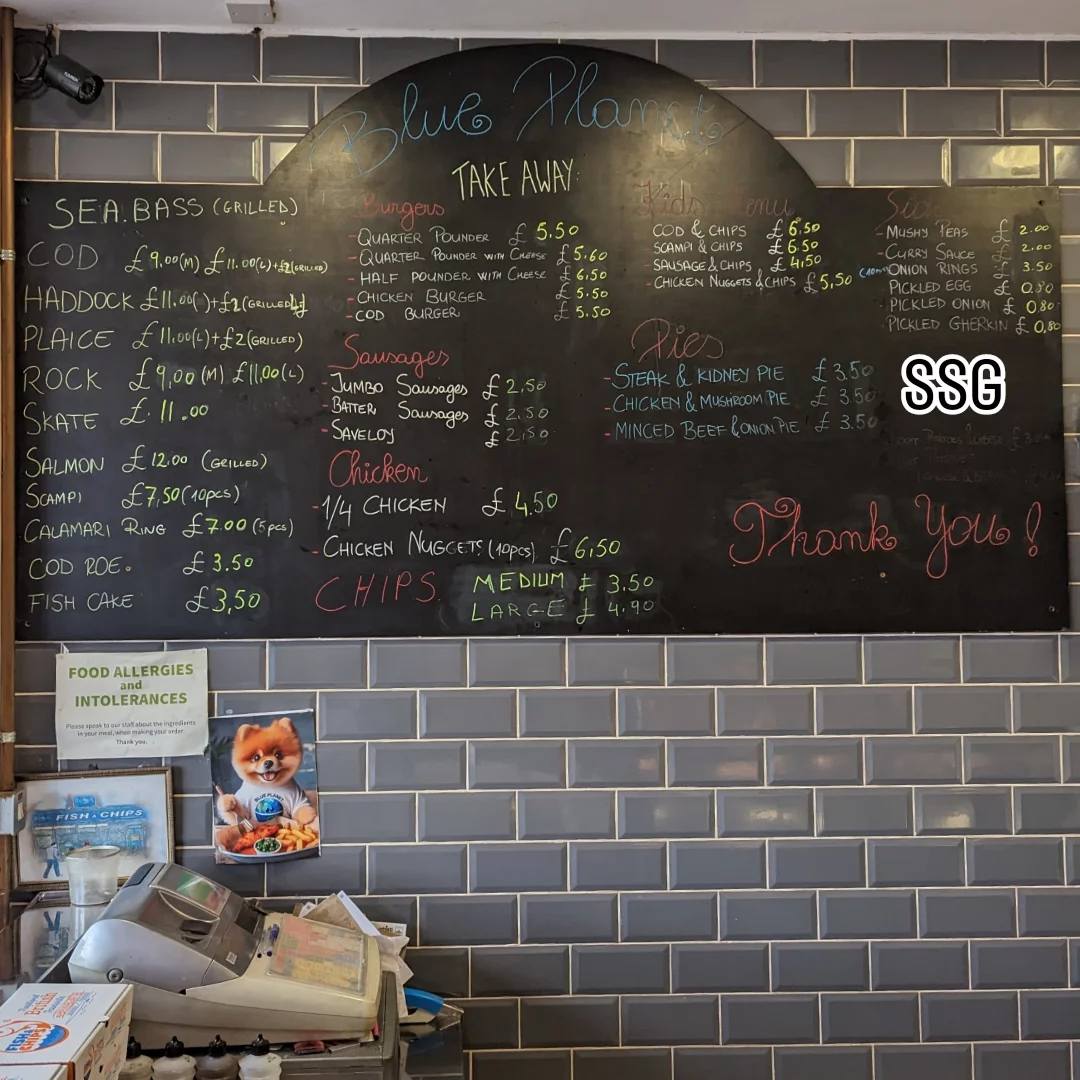 Blue Planet
TAKE AWAY:
SEA.BASS (GRILLED)
COD £9,00(M) £11.00(L)+£2(GRILLED)
HADDOCK £11.00( )+£2(GRILLED)
PLAICE £11.00(L)+£2(GRILLED)
ROCK £9,00(M) £11,00(L)
SKATE £.11.00
SALMON £12.00 (GRILLED)
SCAMPI £7,50(10pcs)
CALAMARI RING £7.00 (5pcs)
COD ROE. £3.50
FISH CAKE £3,50
Burgers
-QUARTER POUNDER £5.50
-QUARTER POUNDER WITH CHEESE £5.60
-HALF POUNDER WITH CHEESE £6,50
-CHICKEN BURGER £5.50
-COD BURGER £5.50
Sausages
-JUMBO Sausages £2,50
-BATTER Sausages £2.50
-SAVELOY £2,50
Chicken
-1/4 CHICKEN £4.50
-CHICKEN NUGGETS (10pcs) £6,50
CHIPS MEDIUM £3.50
LARGE £4.90
Kids Menu
COD & CHIPS £6,50
SCAMPI & CHIPS £6.50
SAUSAGE & CHIPS £4,50
-CHICKEN NUGGETS & CHIPS £5,50
Pies
-STEAK & KIDNEY PIE £3.50
-CHICKEN & MUSHROOM PIE £3.50
-MINCED BEEF & ONION PIE £3.50
-MUSHY PEAS £2.00
-CURRY SAUCE £2.00
ONION RINGS £3.50
PICKLED EGG £0.80
-PICKLED ONION £0,80
-PICKLED GHERKIN £0,80
SSG
Thank You!
FOOD ALLERGIES
and
INTOLERANCES
Please speak to our staff about the ingredients
in your meal, when making your order.
Thank you.
FISH & CHIPS
BLUE PLANET
British
FISH &
CHIPS